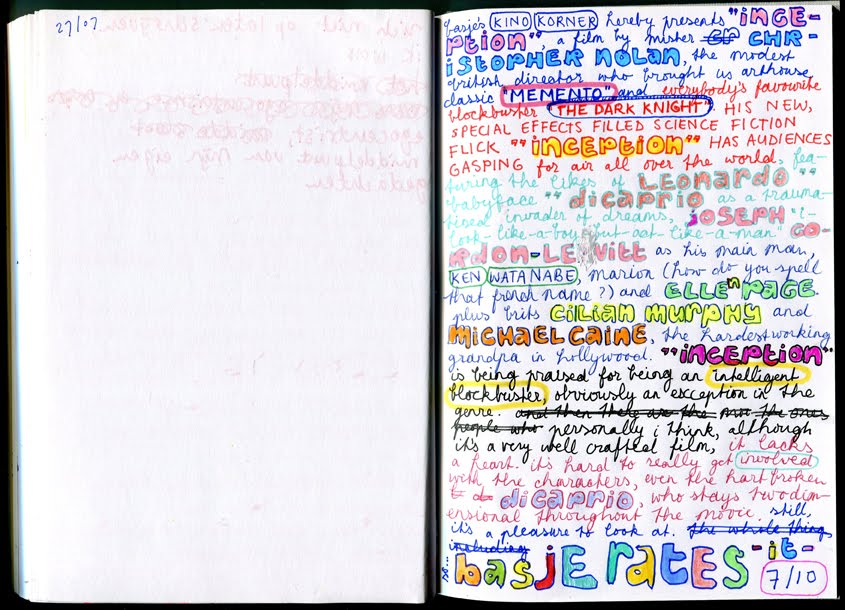 27/07
basje's KINO KORNER hereby presents "INCE-
PTION", a film by mister CHR-
ISTOPHER NOLAN, the modest
british director who brought us arthouse
classic "MEMENTO" and everybody's favourite
blockbuster "THE DARK KNIGHT". HIS NEW,
SPECIAL EFFECTS FILLED SCIENCE FICTION
FLICK "INCEPTION" HAS AUDIENCES
GASPING for air all over the world, fea-
turing the likes of LEONARDO
"babyface" DICAPRIO as a trauma-
tised invader of dreams, JOSEPH "i-
look-like-a-boy-but-act-like-a-man" GO-
RDON-LEWITT as his main man,
KEN WATANABE, marion (how do you spell
that french name?) and ELLEN PAGE.
plus brits CILIAN MURPHY and
MICHAEL CAINE, the hardestworking
grandpa in hollywood. "INCEPTION"
is being praised for being an intelligent
blockbuster, obviously an exception in the
genre. and then there are the mo the ones
people who personally i think, although
it's a very well crafted film, it lacks
a heart. it's hard to really get involved
with the characters, even the hartbroken
DICAPRIO, who stays twodim-
ensional throughout the movie. still,
it's a pleasure to look at. the whole thing
including
basje rates-it-
7/10